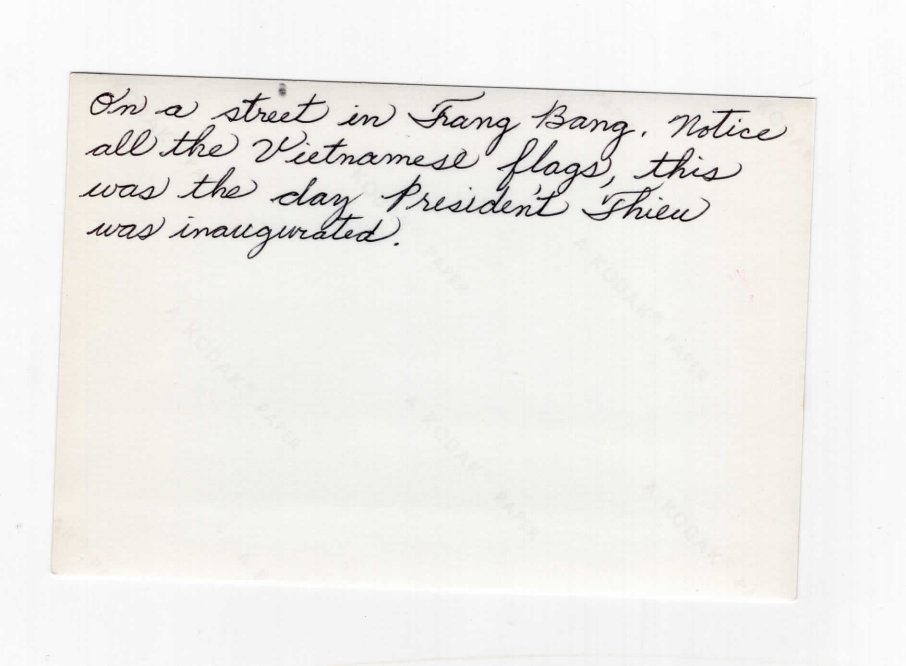 On a street in Trang Bang. Notice
all the Vietnamese flags, this
was the day President Thieu
was inaugurated.
A KODAK PAPER
A KODAK PAPER
A KODAK PAPER